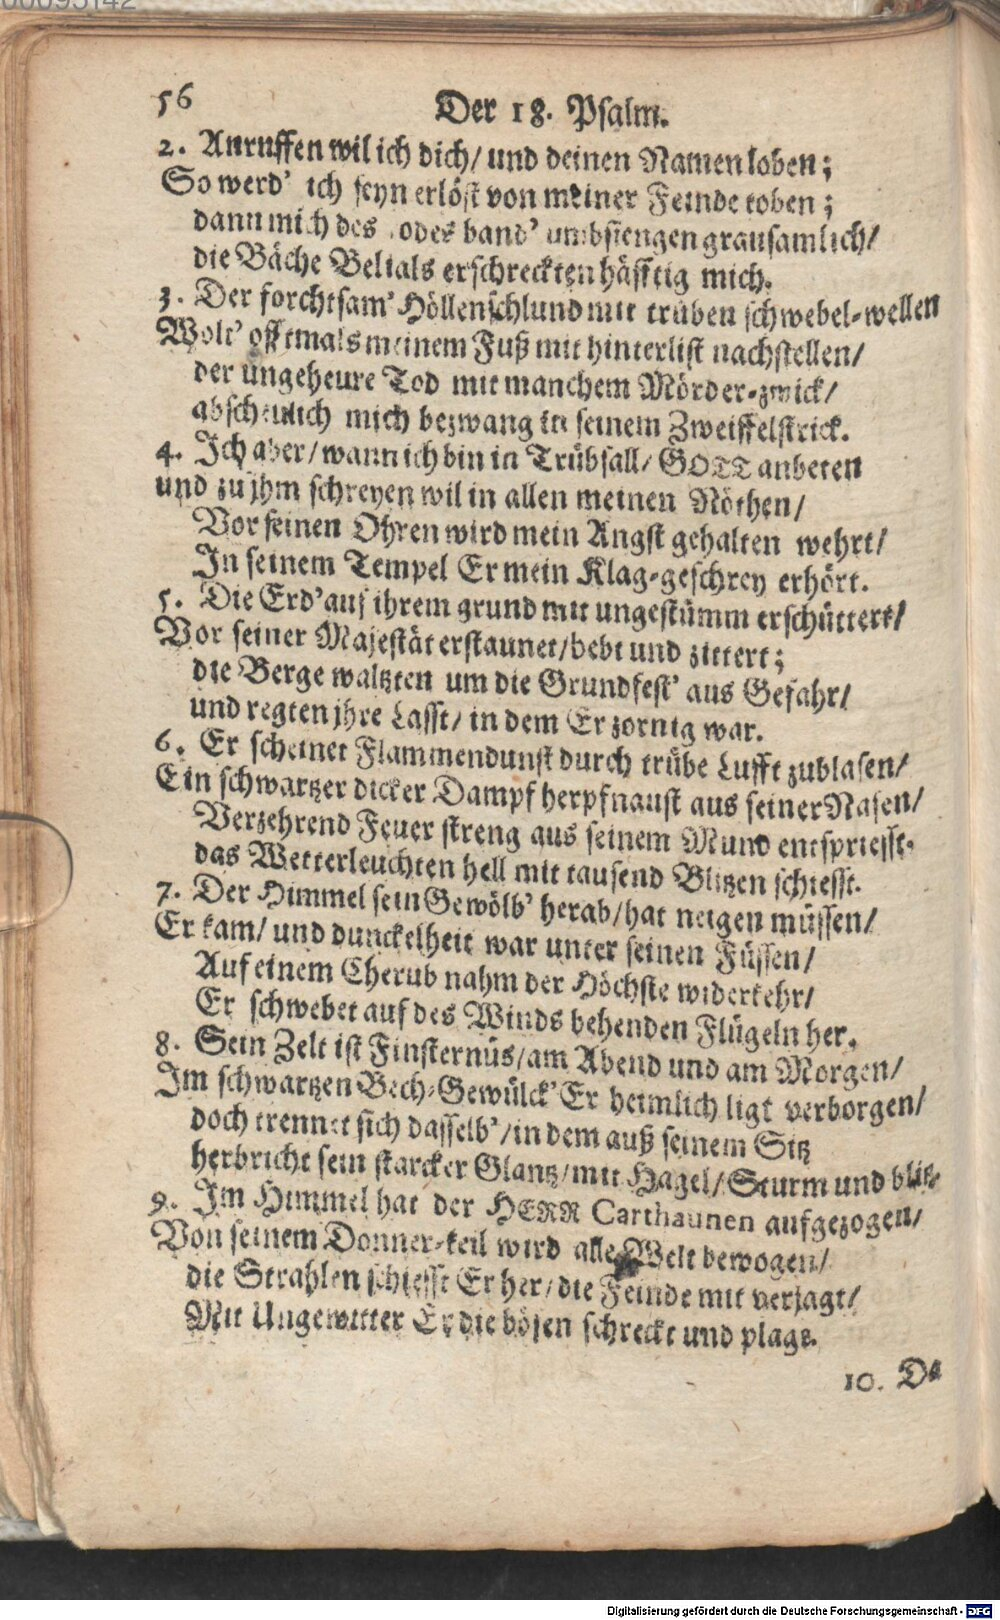 56
Der 18. Psalm.
2. Anruffen wil ich dich/ und deinen Namen loben;
So werd' ich seyn erlöst von meiner Feinde toben;
dann mich des odes band' umbfiengen grausamlich/
die Bäche Belials erschreckten häfftig mich.
3. Der forchtsam' Höllenschlund mit trüben schwebel-wellen
Wolt' offtmals meinem Fuß mit hinterlist nachstellen/
der ungeheure Tod mit manchem Mörder-zwick/
abscheulich mich bezwang in seinem Zweiffelstrick.
4. Ich aber/ wann ich bin in Trübsall/ GOTT anbeten
und zu jhm schreyen wil in allen meinen Nöthen/
Vor seinen Ohren wird mein Angst gehalten wehrt/
In seinem Tempel Er mein Klag-geschrey erhört.
5. Die Erd' auf ihrem grund mit ungestümm erschüttert/
Vor seiner Majestät erstaunet/ bebt und zittert;
die Berge waltzten um die Grundfest' aus Gefahr/
und regten jhre Lasst/ in dem Er zornig war.
6. Er scheinet Flammendunst durch trübe Lufft zublasen/
Ein schwartzer dicker Dampf herpfnaust aus seiner Nasen/
Verzehrend Feuer streng aus seinem Mund entspriesst.
das Wetterleuchten hell mit tausend Blitzen schiesst.
7. Der Himmel sein Gewölb' herab/ hat neigen müssen/
Er kam/ und dunckelheit war unter seinen Füssen/
Auf einem Cherub nahm der Höchste widerkehr/
Er schwebet auf des Winds behenden Flügeln her.
8. Sein Zelt ist Finsternüs/ am Abend und am Morgen/
Im schwartzen Bech-Gewülck' Er heimlich ligt verborgen/
doch trennet sich dasselb'/ in dem auß seinem Sitz
herbricht sein starcker Glantz/ mit Hagel/ Sturm und blitz.
9. Im Himmel hat der HERR Carthaunen aufgezogen/
Von seinem Donner-keil wird alle Welt bewogen/
die Strahlen schiesst Er her/ die Feinde mit verjagt/
Mit Ungewitter Er die bösen schreckt und plagt.
10. Da
Digitalisierung gefördert durch die Deutsche Forschungsgemeinschaft - DFG